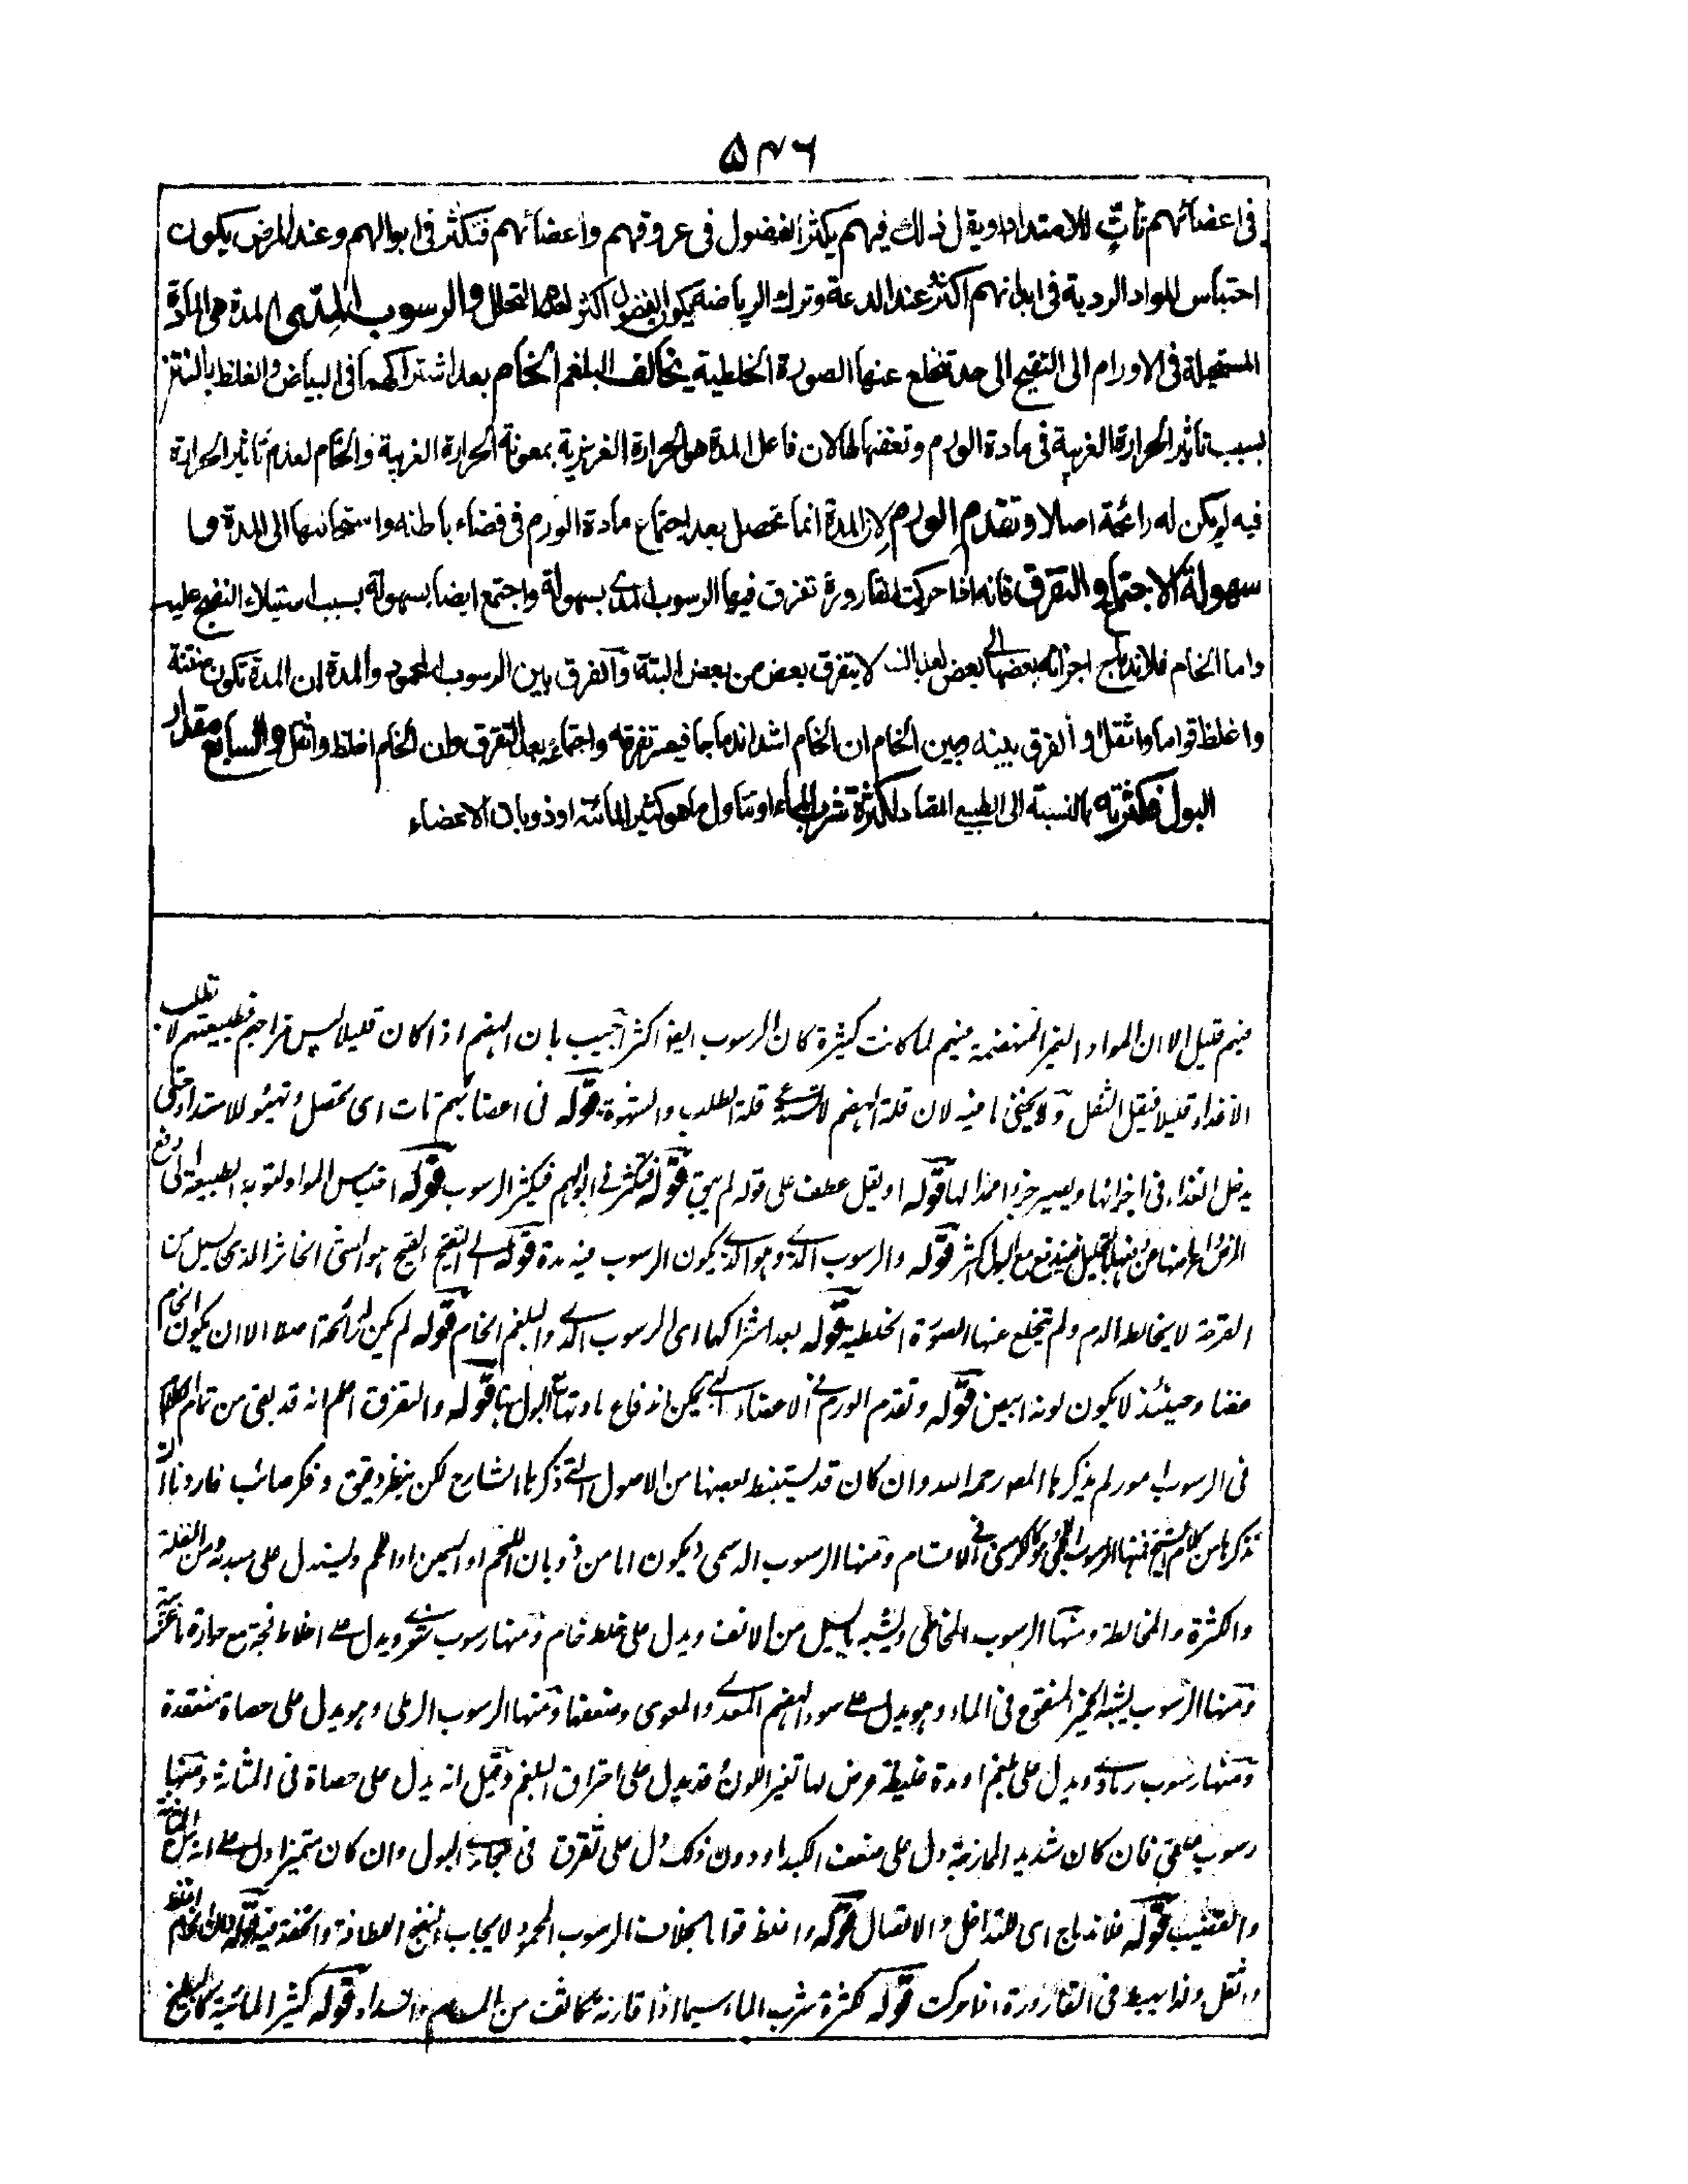 ۵۴۶
فی اعضائهم تأتٍ للامتداد او یقل ذلك فیهم یکثر الفضول فی عروقهم واعضائهم فتکثر فی ابوالهم وعند المرض یکون
احتباس المواد الردیة فی ابدانهم اکثر وعند الدعة وترك الریاضة یکون الفضول اکثر لعدم التحلل والرسوب المدّی المدة هی المادة
المستحیلة فی الاورام الی التقیح الی حد تنخلع عنها الصورة الخلطیة یخالف البلغم الخام بعد اشتراکهما فی البیاض والغلظ بالنتن
بسبب تأثیر الحرارة الغریبة فی مادة الورم وتعفنها لها لان فاعل المدة هو الحرارة الغریزیة بمعونة الحرارة الغریبة والخام لعدم تأثیر الحرارة
فیه لم یکن له رائحة اصلا وتقدم الورم لان المدة انما تحصل بعد اجتماع مادة الورم فی فضاء باطنه واستحالتها الی المدة و
سهولة الاجتماع والتفرق فانه اذا حرکت القارورة تفرق فیها الرسوب المدی بسهولة واجتمع ایضا بسهولة بسبب استیلاء النضج علیه
واما الخام فلاندماج اجزائه بعضها الی بعض لا یتفرق بعض من بعض البتة والفرق بین الرسوب المحمود والمدة ان المدة تکون منتنة
واغلظ قواما واثقل والفرق بینه وبین الخام ان الخام اشد اندماجا فیعسر تفرقه واجتماعه بعد التفرق وان الخام اغلظ واثقل والسابع مقدار
البول فکثرته بالنسبة الی الطبیعی المعتاد لکثرة شرب الماء او تناول ما هو کثیر المائیة او ذوبان الاعضاء
فیهم قلیل الا ان المواد الغیر المنهضمة فیهم لما کانت کثیرة کان الرسوب ایضا اکثر اجیب بان الهضم اذا کان قلیلا لیس مزاجهم فطبیعتهم لا تطلب
الاغذاء قلیلا فیقل الثفل ولا یخفی ما فیه لان قلة الهضم لا تستدعی قلة الطلب والشهوة قوله فی اعضائهم تات ای تحصل وتهیؤ للامتداد حتی
یدخل الغذاء فی اجزائها ویصیر جزءا لها قوله او یقل عطف علی قوله لم یبق قوله فتکثر فی ابوالهم فیکثر الرسوب قوله احتباس المواد لتوجه الطبیعة الی دفع
قوله والرسوب المدی وهو الذی یکون الرسوب فیه مدة قوله الی التقیح القیح هو الشئ الخاثر الذی یسیل من
القرحة لا یخالط الدم ولم تنخلع عنها الصورة الخلطیة قوله بعد اشتراکهما ای الرسوب المدی والبلغم الخام قوله لم یکن له رائحة اصلا الا ان یکون الخام
عفنا وحینئذ لا یکون لونه ابیض قوله وتقدم الورم فی الاعضاء التی یمکن اندفاع مادتها مع البول قوله والتفرق اعلم انه قد بقی من تمام الکلام
فی الرسوب امور لم یذکرها المص رحمه الله وان کان قد یستنبط بعضها من الاصول التی ذکرها الشارح لکن بنظر دقیق وفکر صائب فاردنا ان
نذکرها من کلام الشیخ فمنها الرسوب اللحمی فی الاقسام ومنها الرسوب الدسمی ویکون اما من ذوبان الشحم او السمین او اللحم ویستدل علی مبدئه من القلة
والکثرة والمخالطة ومنها الرسوب المخاطی ویشبه ما یسیل من الانف ویدل علی خلط خام ومنها رسوب شعری ویدل علی اخلاط فجة مع حرارة
ومنها الرسوب یشبه الخمیر المنقوع فی الماء وهو یدل علی سوء الهضم المعدی والمعوی وضعفها ومنها الرسوب الرملی وهو یدل علی حصاة منعقدة
ومنها رسوب رمادی ویدل علی بلغم او مدة غلیظة عرض لها تغیر اللون وقد یدل علی احتراق البلغم وقیل انه یدل علی حصاة فی المثانة ومنها
رسوب علقی فان کان شدید الممازجة دل علی ضعف الکبد او دون ذلك دل علی تفرق فی مجاری البول وان کان متمیزا دل علی انه من المثانة
والقضیب قوله فلاندماج ای للتداخل والاتصال قوله واغلظ قواما بخلاف الرسوب المحمود لایجاب النضج اللطافة والخفة فیه قوله وان الخام اغلظ
واثقل ولذا یهبط فی القارورة اذا حرکت قوله لکثرة شرب الماء سیما اذا قارنه تکاثف من المسام وانسداد قوله کثیر المائیة کالبطیخ